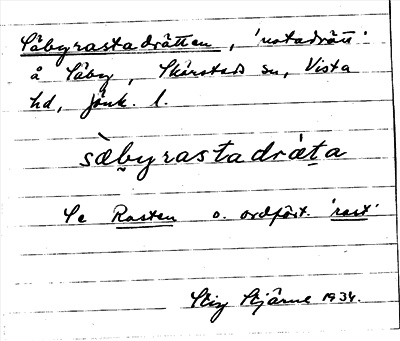 Säbyrastadrätten, 'rastadrätt'
å Säby, Skärstads sn, Vista
hd, Jönk. l.
sæ̀byrastadrǽta
Se Rasten o. ordfört. 'rast'
Stig Stjärne 1934.